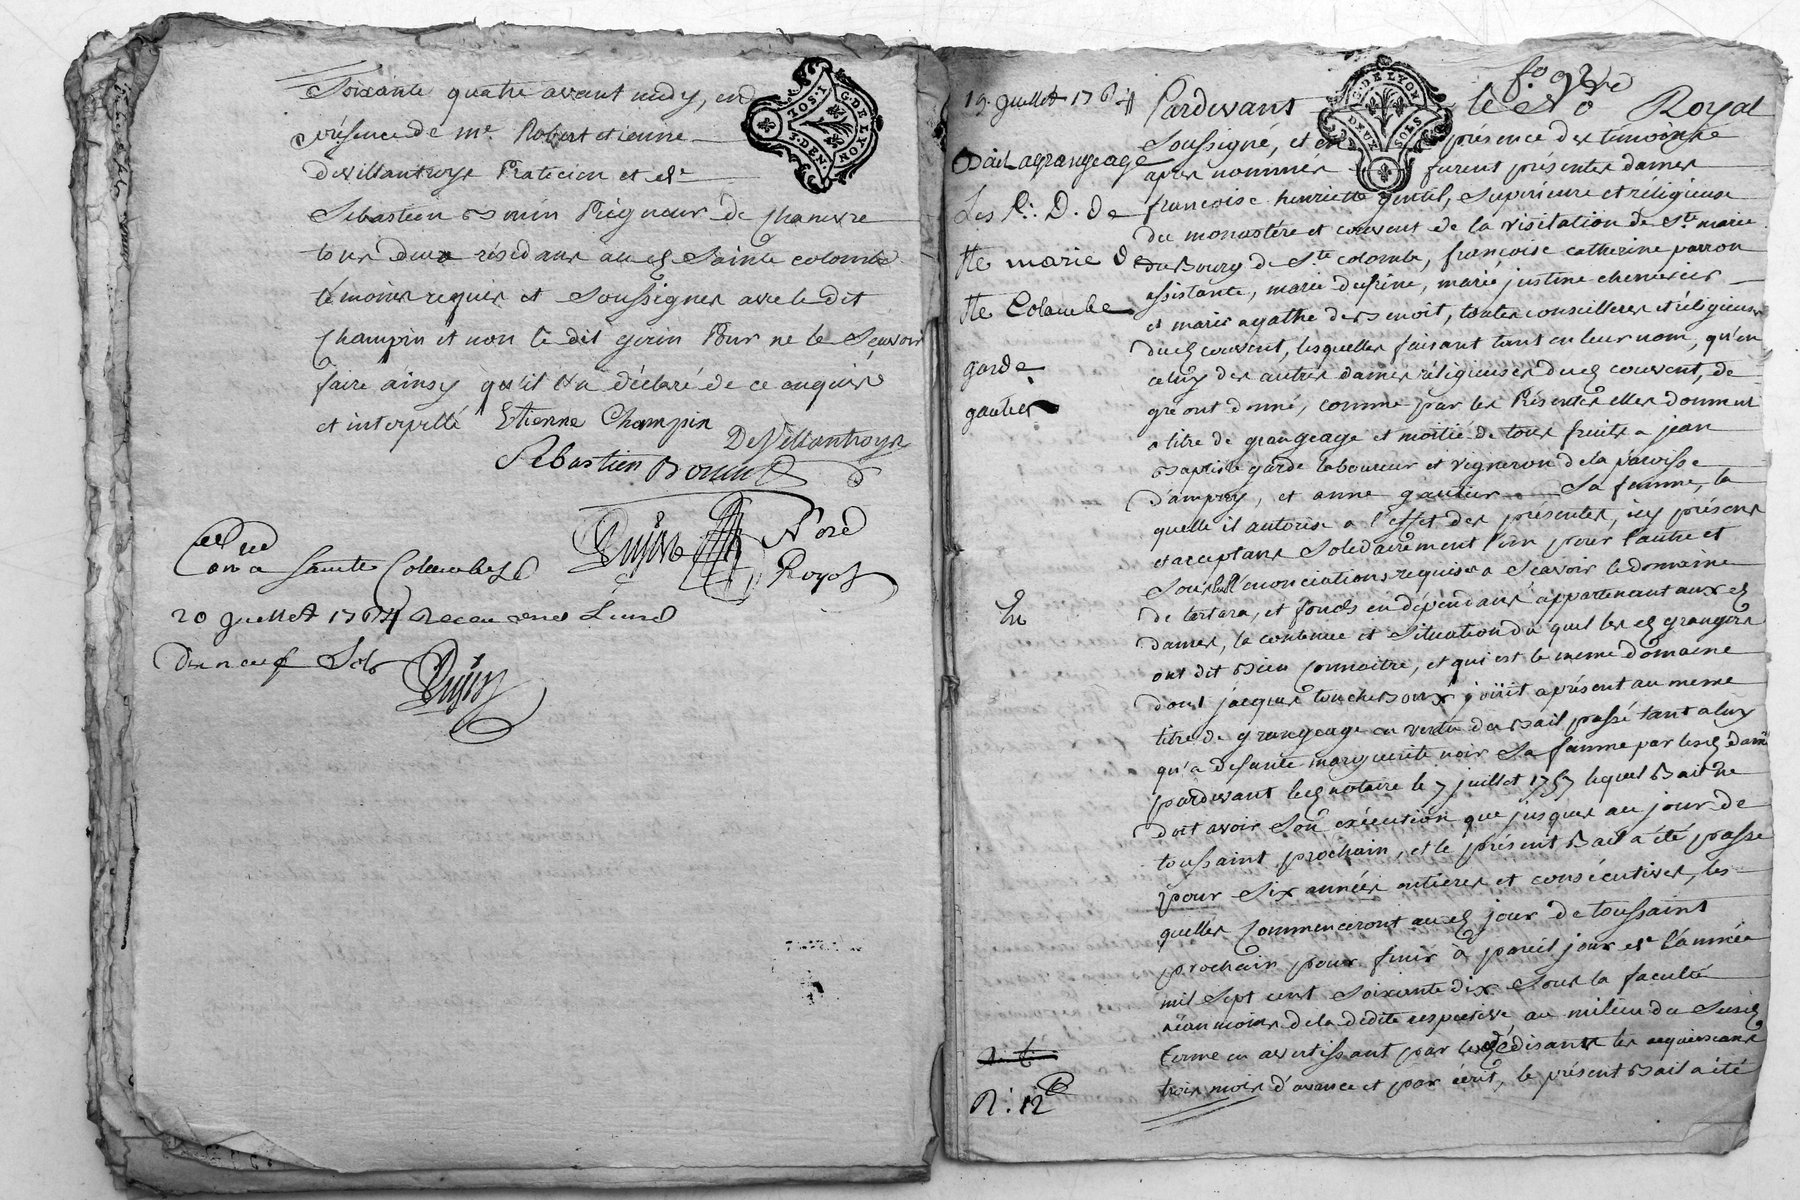 Soixante quatre avant midy, en
présence de me. Robert etienne
devillantroys Praticien et Sr.
Sébastien Bonin Peigneur de chanvre
tous deux résidans aud. Sainte colombe
témoins requis et Soussignes avec le dit
Champin et non le dit gerin Pour ne le Scavoir
faire ainsy qu'il l'a déclaré de ce enquis
et interpellé Etienne Champin
DeVillantroys
Sebastien Bonin
Dujin
Noré
Royol
Con a Sainte Colombe le
20 Juillet 1764 Receu
Dix neuf Sols
Dujin
G. DE LYON
fo. 92
19. Juillet 1764
Bail a grangeage
Les R: D. de
Ste marie de
Ste Colombe
garde
gautier
R: 12
Pardevant le No Royal
Soussigné, et en présence des témoins
apres nommés furent présentes dames
francoise henriette gentil, Supérieure et réligieuse
du monastére et couvent de la visitation de Ste. marie
du Bourg de Ste colombe, françoise catherine parron
assistante, marie dufine, marie justine chemercier
et marie agathe de Benoit, toutes conseilleres et réligieuses
dud couvent, lesquelles faisant tant en leur nom, qu'en
celuy des autres dames réligieuses dud couvent, de
gré ont donné, comme par les Présentes elles donnent
a titre de grangeage et moitié de tous fruits a jean
Baptiste garde laboureur et vigneron de la paroisse
d'ampuy, et anne gautier Sa femme, la
quelle il autorise a l'effet des présentes, icy présens
et acceptans Solidairement l'un pour l'autre et
Sous les renonciations requises a Scavoir le domaine
de tartara, et fonds en dépendans appartenant aux d
dames, la contenue et Situation du quel les d grangers
ont dit Bien connoitre, et qui est le meme domaine
dont jacques toucheboeux joüit a présent au meme
titre de grangeage en vertu du Bail passé tant a luy
qu'a defunte marguerite noir Sa femme par lesd dames
pardevant led notaire le 7 juillet 1757 lequel Bail ne
doit avoir Son exécution que jusques au jour de
toussaint prochain, et le présent Bail a été passé
pour Six années entieres et consécutives, les
quelles Commenceront aud jour de toussaint
prochain pour finir à pareil jour de l'année
mil Sept cent Soixante dix Sous la faculté
néanmoins de la dedite respective, au milieu du Susd
terme en avertissant par le dedisant les acquiescans
trois mois d'avance et par écrit, le présent Bail a été